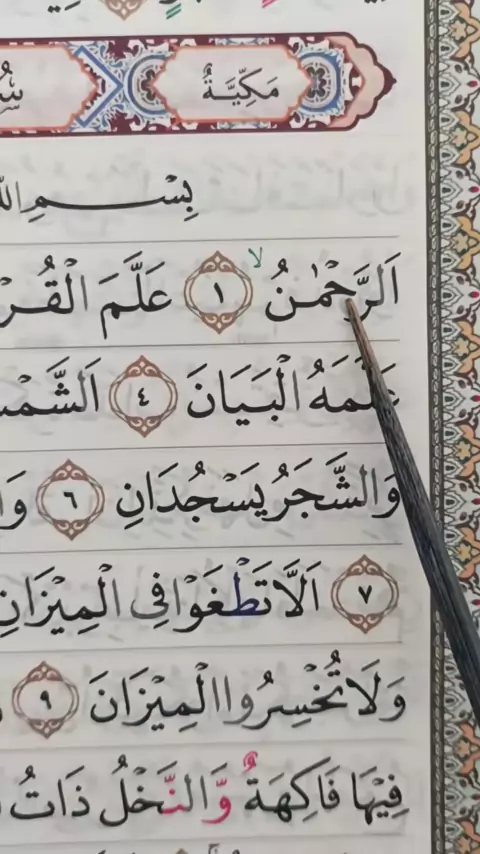 مَكِّيَّةٌ
بِسْمِ
اَلرَّحْمٰنُ ۙ ١ عَلَّمَ
عَلَّمَهُ الْبَيَانَ ٤
وَالشَّجَرُ يَسْجُدَانِ ٦
٧ اَلَّا تَطْغَوْا فِى الْمِيْزَانِ
وَلَا تُخْسِرُوا الْمِيْزَانَ ٩
فِيْهَا فَاكِهَةٌ وَّالنَّخْلُ ذَاتُ